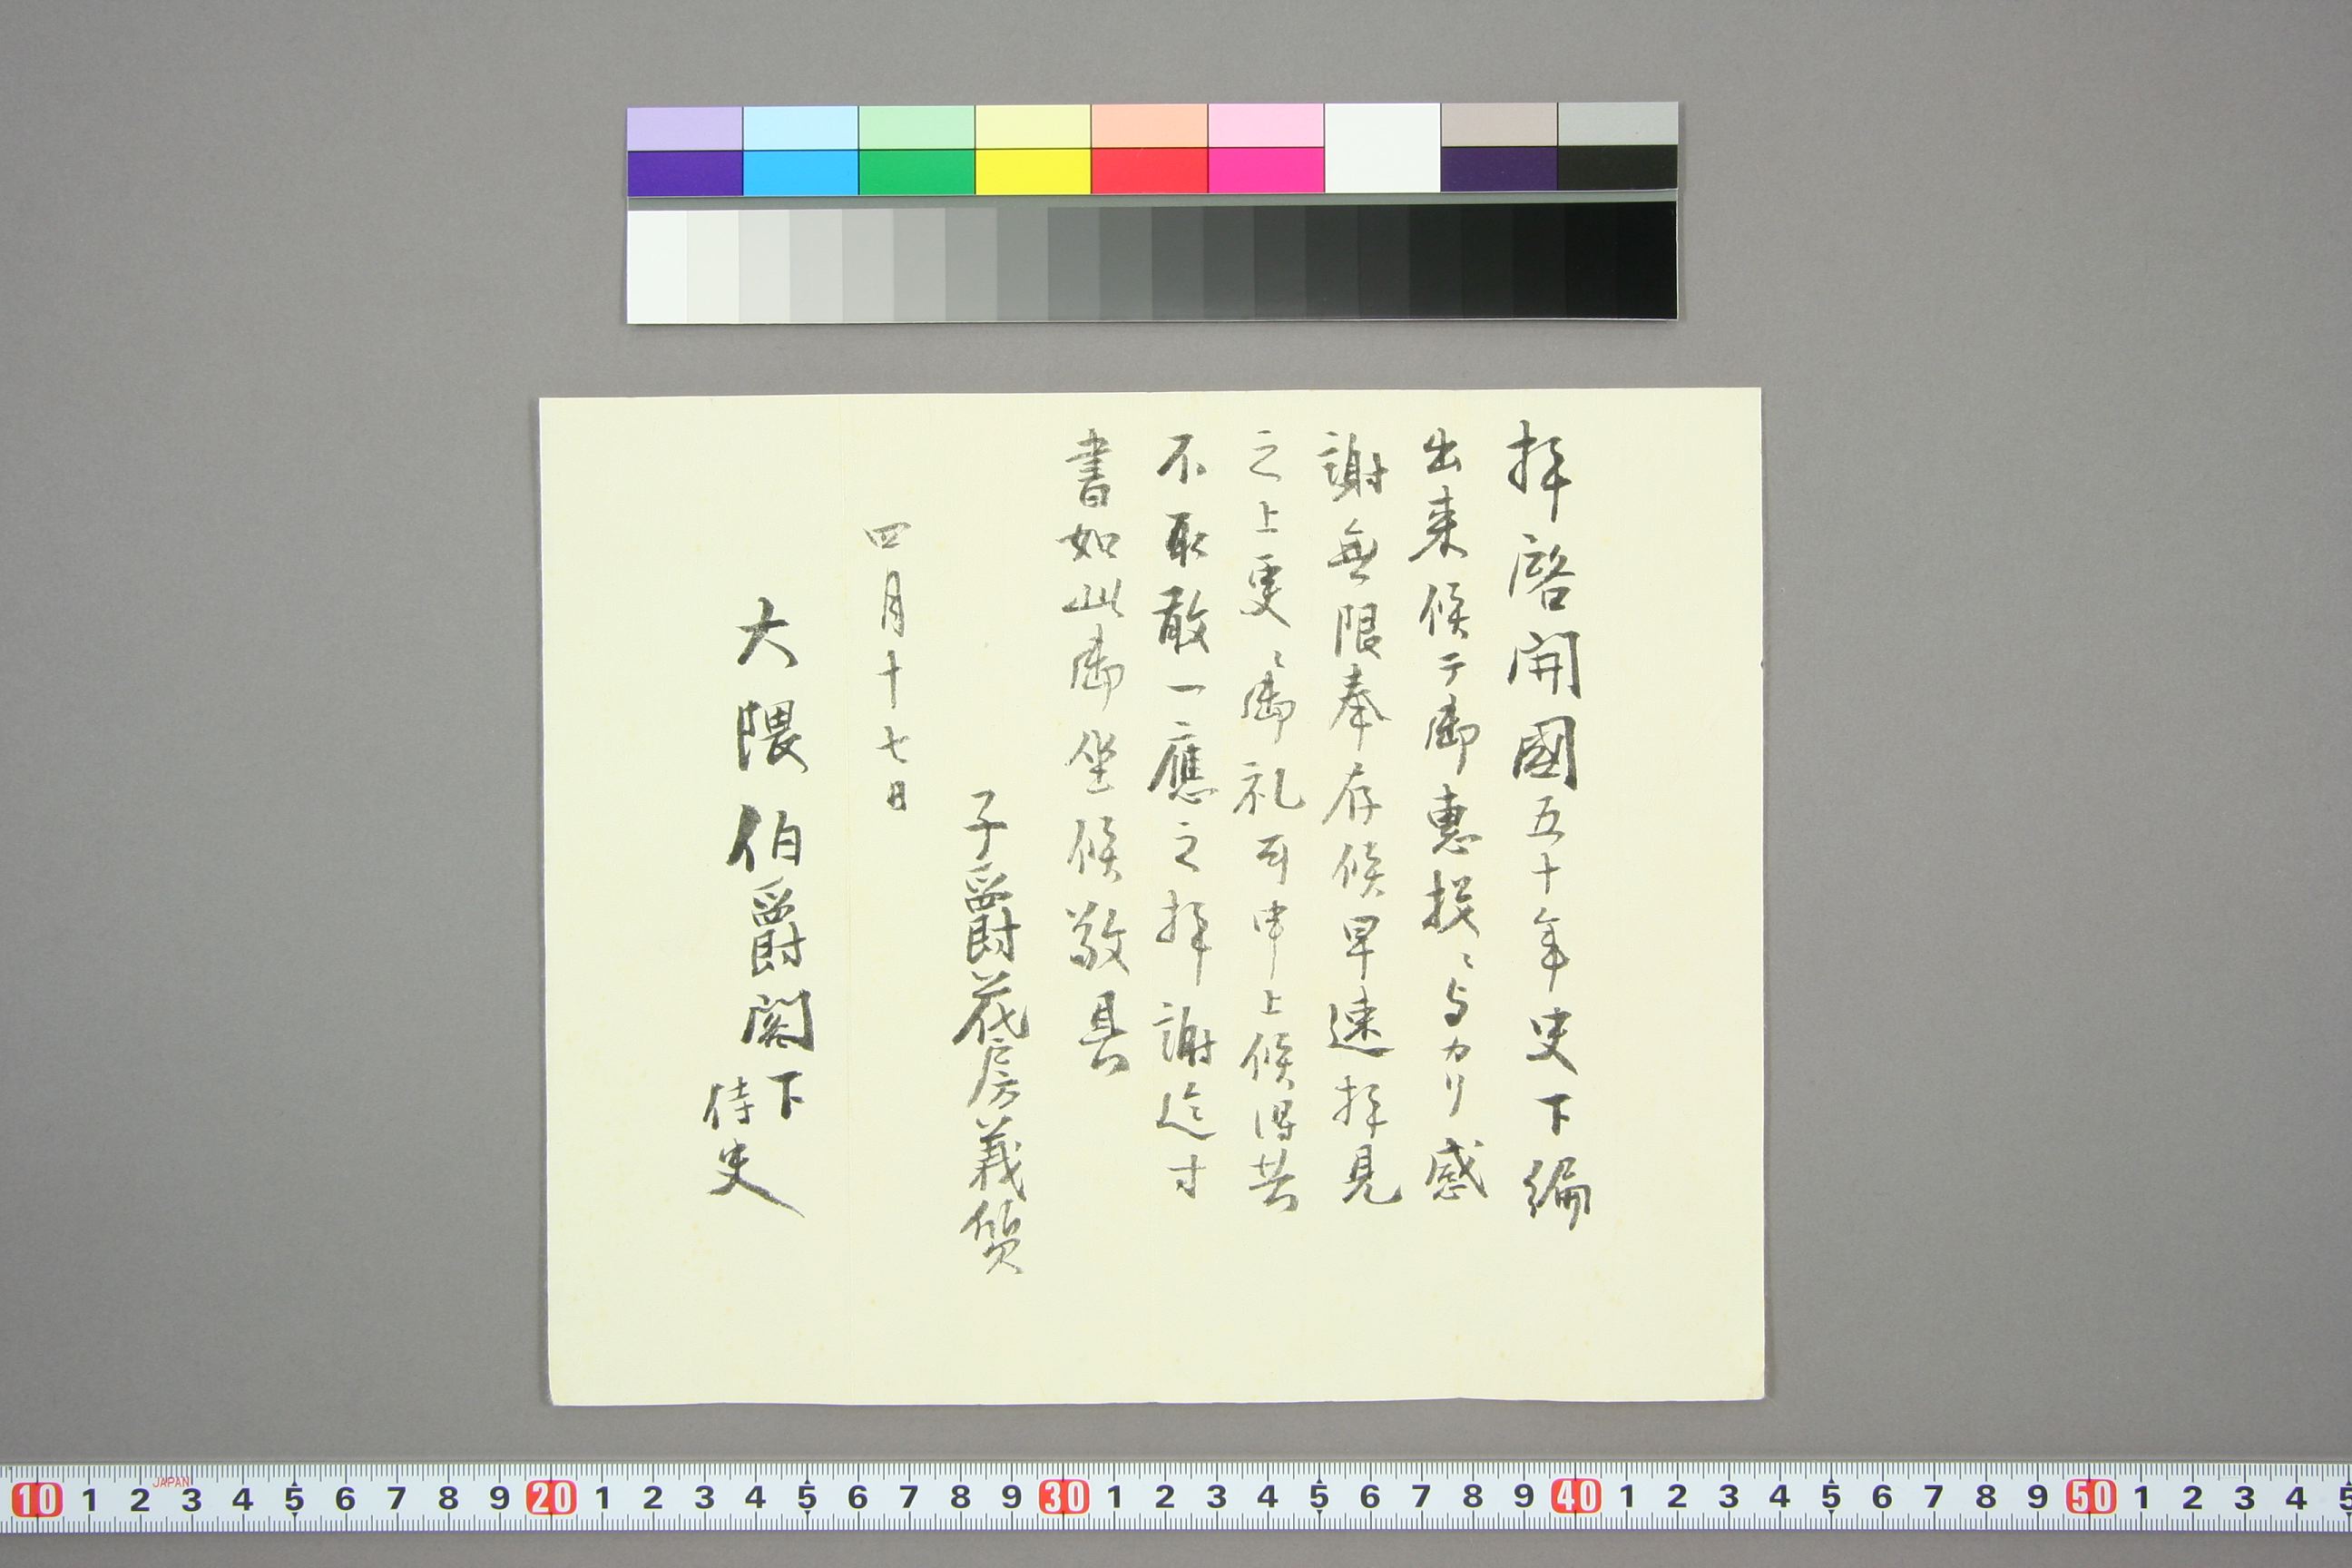 拝啓開國五十年史下編
出来候テ御恵投ニ与カリ感
謝無限奉存候早速拝見
之上更ニ御礼可申上候得共
不取敢一應之拝謝迄寸
書如此御坐候敬具
子爵花房義質
四月十七日
大隈伯爵閣下
侍史
JAPAN
10 1 2 3 4 5 6 7 8 9 20 1 2 3 4 5 6 7 8 9 30 1 2 3 4 5 6 7 8 9 40 1 2 3 4 5 6 7 8 9 50 1 2 3 4 5